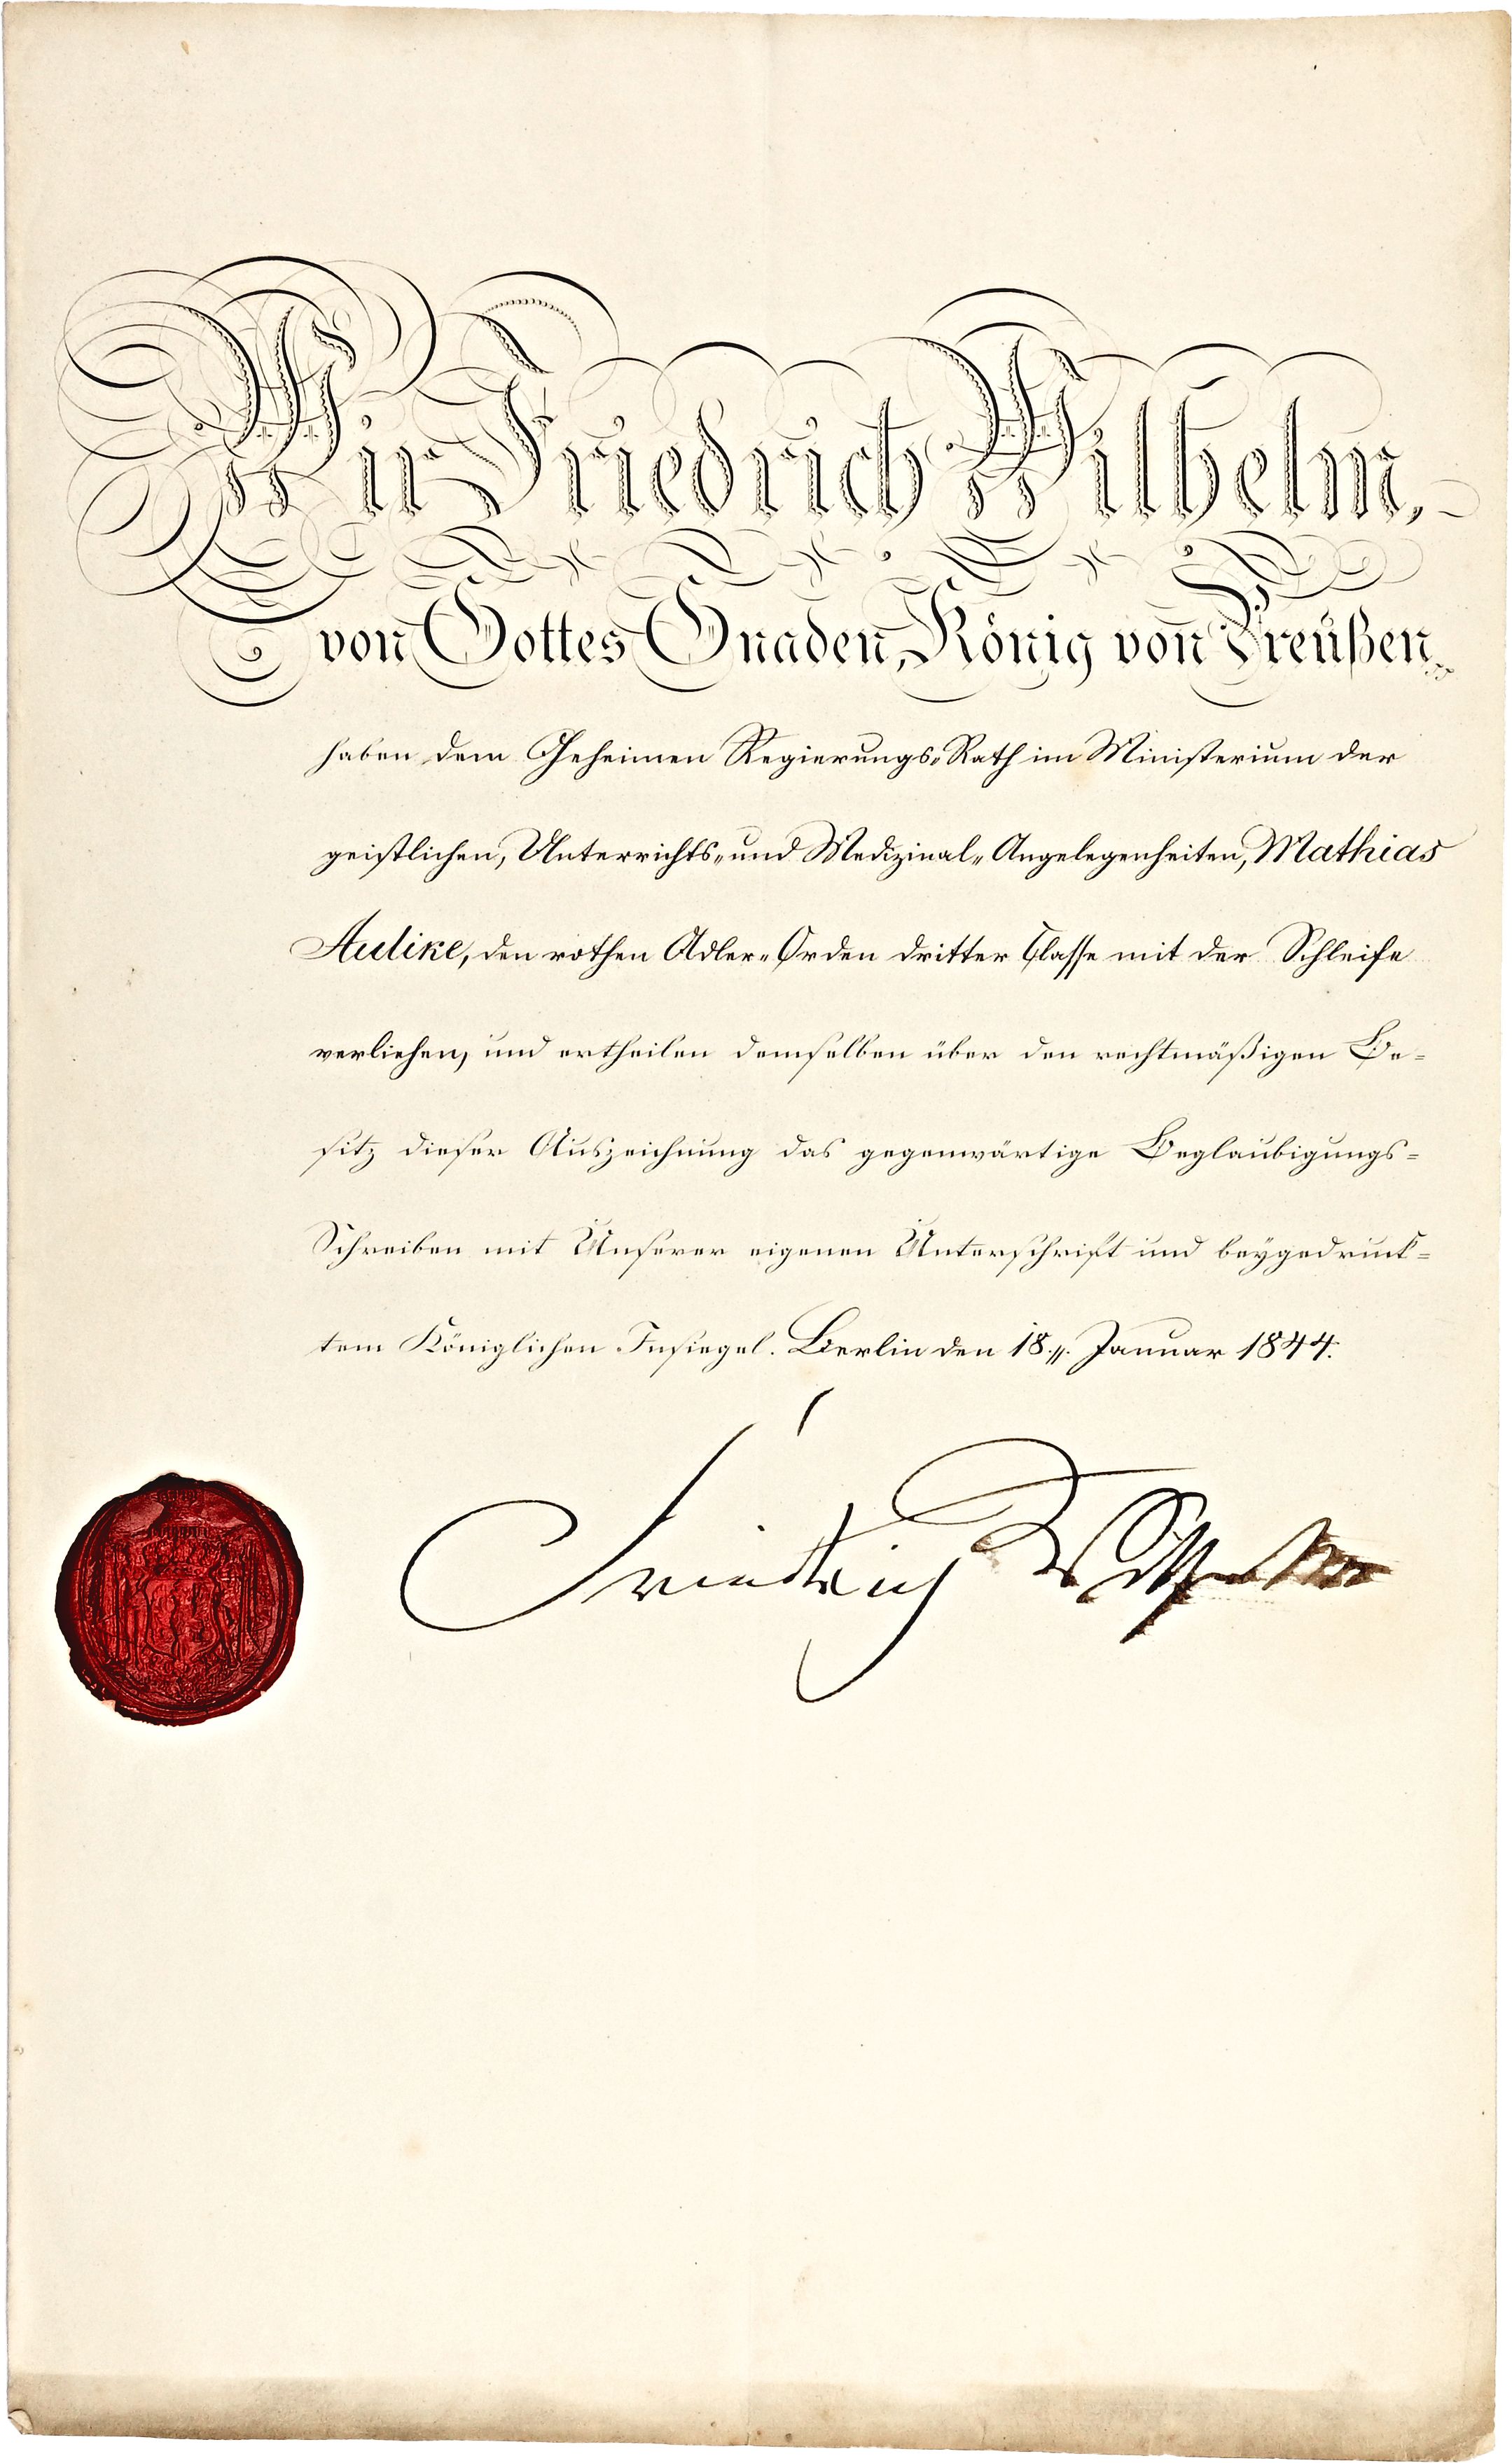 Wir Friedrich Wilhelm,
von Gottes Gnaden, König von Preußen
haben dem Geheimen Regierungs-Rath im Ministerium der
geistlichen, Unterrichts- und Medizinal-Angelegenheiten, Mathias
Aulike, den rothen Adler-Orden dritter Classe mit der Schleife
verliehen, und ertheilen demselben über den rechtmäßigen Be-
sitz dieser Auszeichnung das gegenwärtige Beglaubigungs-
Schreiben mit Unserer eigenen Unterschrift und beygedruck-
tem Königlichen Insiegel. Berlin den 18. Januar 1844.
Friedrich Wilhelm